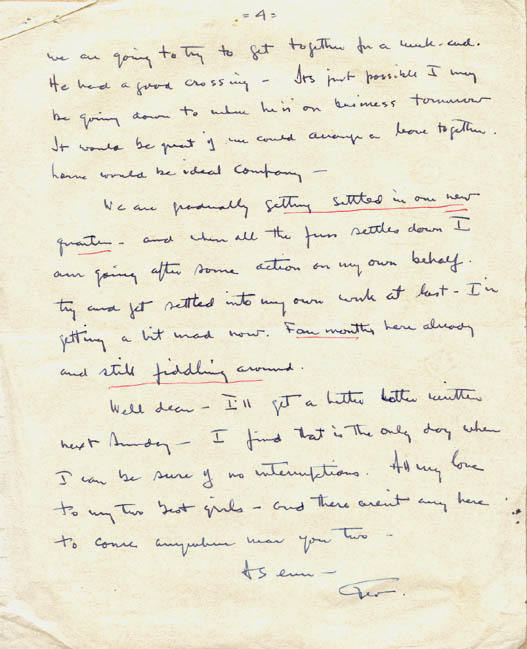 = 4 =
we are going to try to get together for a week-end.
He had a good crossing - Its just possible I may
be going down to where he is on business tomorrow
It would be great if we could arrange a leave together.
would be ideal company -
We are gradually getting settled in our new
quarters - and when all the fuss settles down I
am going after some action on my own behalf.
try and get settled into my own work at last - I'm
getting a bit mad now. Four months here already
and still fiddling around.
Well dear - I'll get a better letter written
next Sunday - I find that is the only day when
I can be sure of no interruptions. All my love
to my two best girls - and there aren't any here
to come anywhere near you two -
As ever -